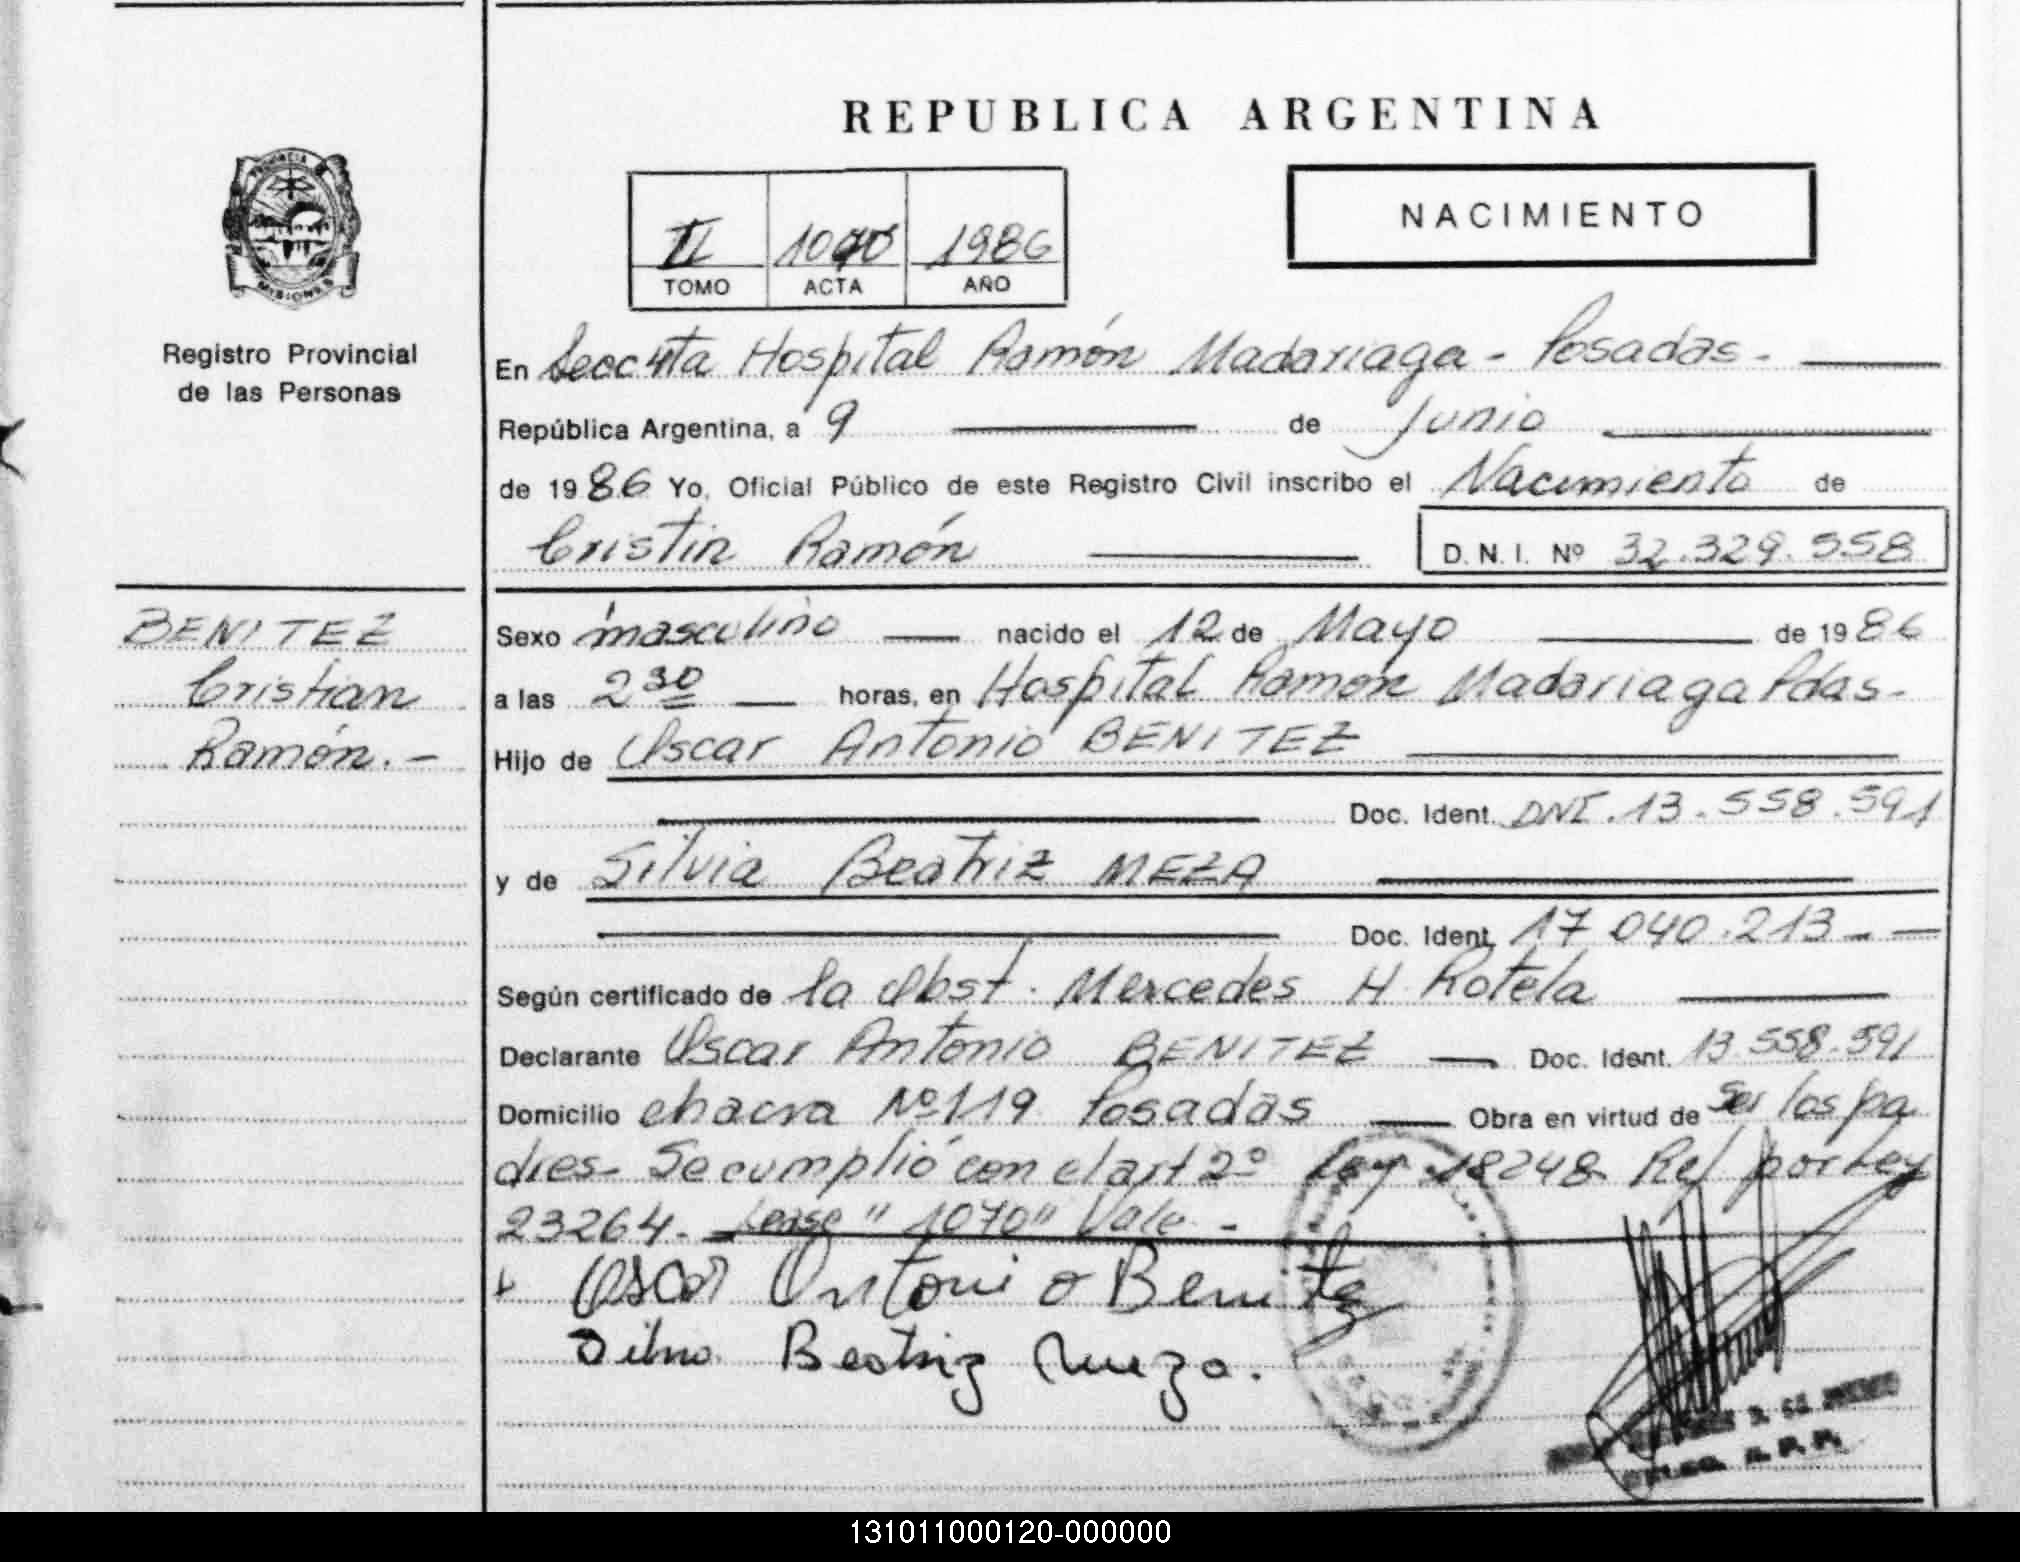 REPUBLICA ARGENTINA
PROVINCIA DE
MISIONES
Registro Provincial
de las Personas
II 1070 1986
TOMO ACTA AÑO
NACIMIENTO
En Secc 4ta Hospital Ramón Madariaga - Posadas -
República Argentina, a 9 de Junio
de 1986 Yo, Oficial Público de este Registro Civil inscribo el Nacimiento de
Cristin Ramón D.N.I. Nº 32.329.558
BENITEZ
Cristian
Ramón. -
Sexo masculino nacido el 12 de Mayo de 1986
a las 2 30 horas, en Hospital Ramón Madariaga Pdas-
Hijo de Oscar Antonio BENITEZ
Doc. Ident. DNI. 13.558.591
y de Silvia Beatriz MEZA
Doc. Ident. 17 040.213 - -
Según certificado de la Obst. Mercedes H Rotela
Declarante Oscar Antonio BENITEZ Doc. Ident. 13.558.591
Domicilio chacra Nº 119 Posadas Obra en virtud de Ser los pa
dres- Se cumplió con el art 2º Ley 18248 Ref por Ley
23264. Lease "1070" Vale -
Oscar Antonio Benitez
Silvia Beatriz Meza.
R. P. P.
131011000120-000000